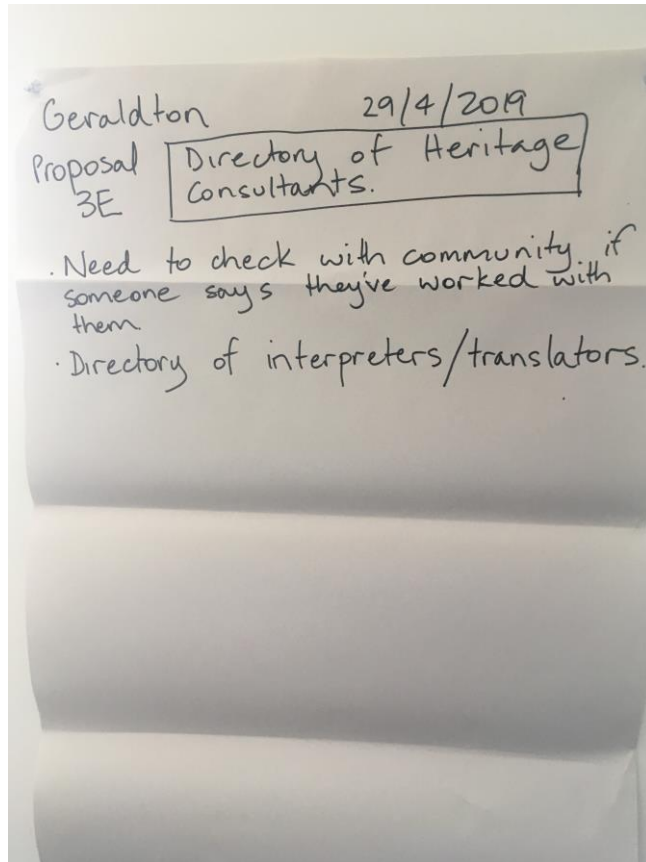 Geraldton 29/4/2019
Proposal 3E
Directory of Heritage
Consultants.
. Need to check with community if
someone says they've worked with
them
. Directory of interpreters/translators.